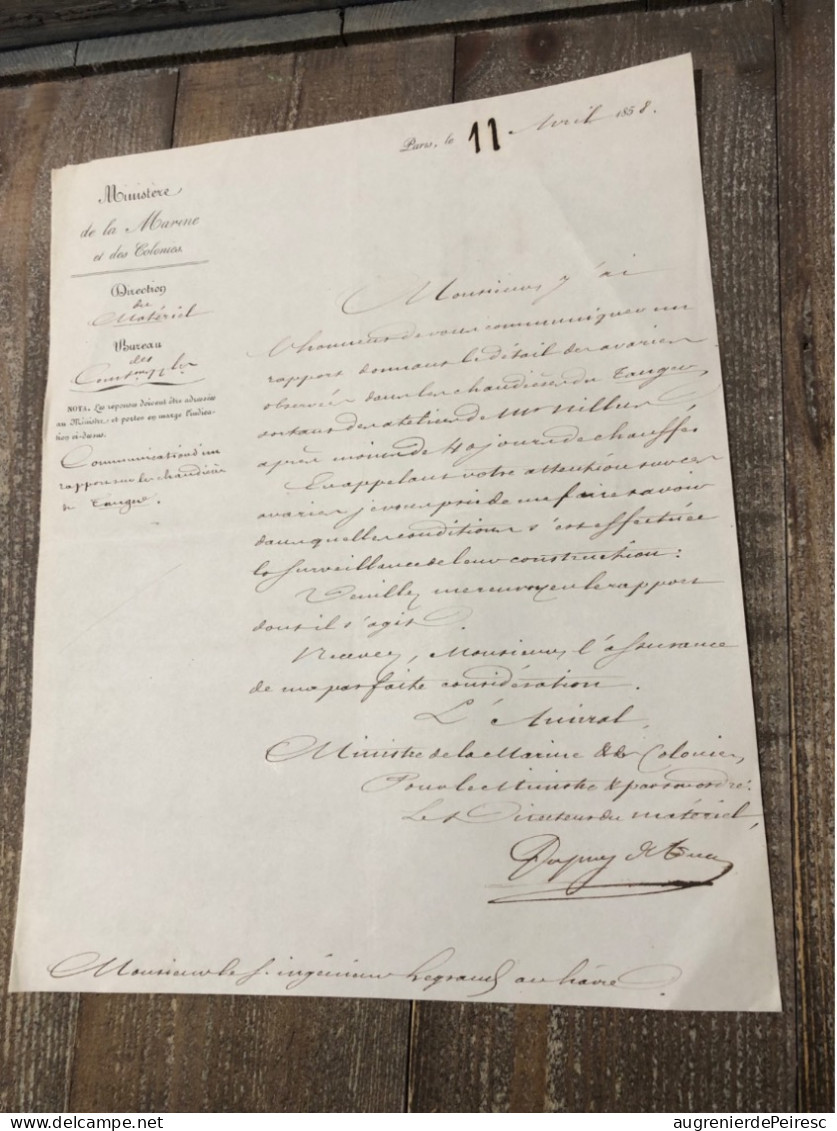 Paris, le 11 Avril 1858.
Ministère
de la Marine
et des Colonies
Direction
du
Matériel
Bureau
des
NOTA. Les réponses doivent être adressées
au Ministre, et porter en marge l'indica-
tion ci-dessus.
Communication d'un
rapport sur les chaudières
du Tanger.
Monsieur, j'ai
l'honneur de vous communiquer un
rapport donnant le détail des avaries
observées dans les chaudières du Tanger,
sortant des ateliers de Mr Nillus,
après moins de 40 jours de chauffe.
En appelant votre attention sur ces
avaries je vous prie de me faire savoir
dans quelles conditions s'est effectuée
la surveillance de leur construction.
Veuillez me renvoyer le rapport
dont il s'agit.
Recevez, Monsieur, l'assurance
de ma parfaite considération.
L'Amiral,
Ministre de la Marine & des Colonies,
Pour le Ministre & par son ordre.
Le Directeur du matériel,
Dupuy de Lome
Monsieur le s. ingénieur Legrand au havre.
augrenierdePeiresc